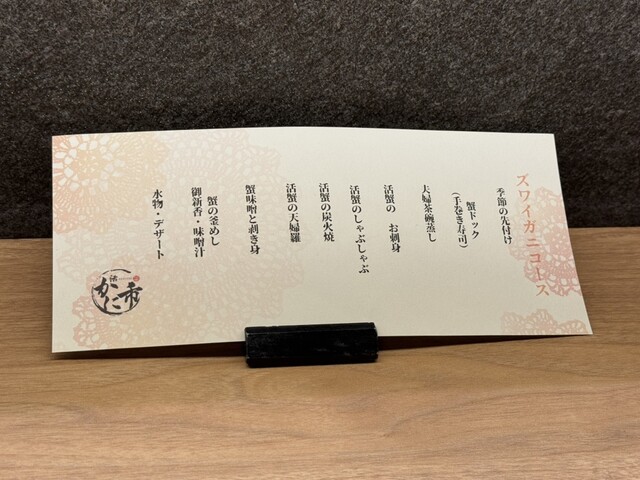 ズワイガニコース
季節の先付け
蟹ドック
(手巻き寿司)
夫婦茶碗蒸し
活蟹の　お刺身
活蟹のしゃぶしゃぶ
活蟹の炭火焼
活蟹の天婦羅
蟹味噌と剥き身
蟹の釜めし
御新香・味噌汁
水物・デザート
かに市